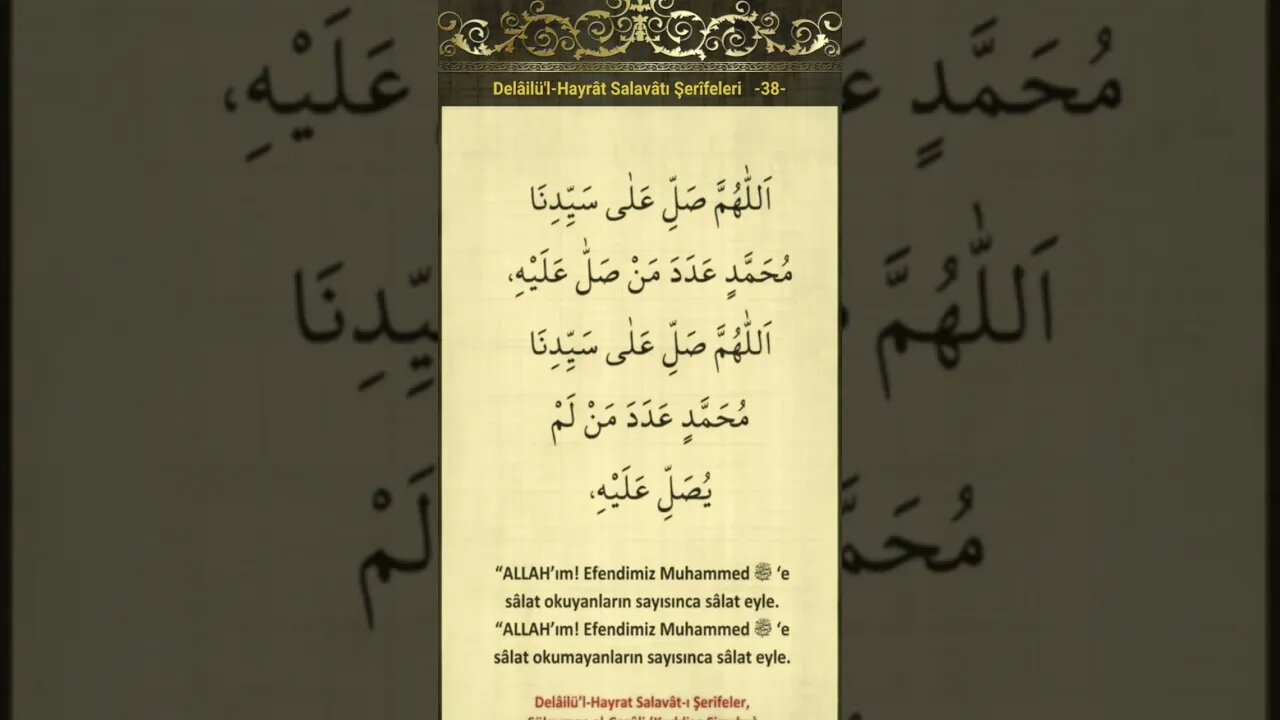 Delâilü'l-Hayrât Salavâtı Şerîfeleri -38-
اَللّٰهُمَّ صَلِّ عَلٰى سَيِّدِنَا
مُحَمَّدٍ عَدَدَ مَنْ صَلّٰ عَلَيْهِ،
اَللّٰهُمَّ صَلِّ عَلٰى سَيِّدِنَا
مُحَمَّدٍ عَدَدَ مَنْ لَمْ
يُصَلِّ عَلَيْهِ،
“ALLAH’ım! Efendimiz Muhammed ﷺ ‘e
sâlat okuyanların sayısınca sâlat eyle.
“ALLAH’ım! Efendimiz Muhammed ﷺ ‘e
sâlat okumayanların sayısınca sâlat eyle.
Delâilü’l-Hayrat Salavât-ı Şerifeler,